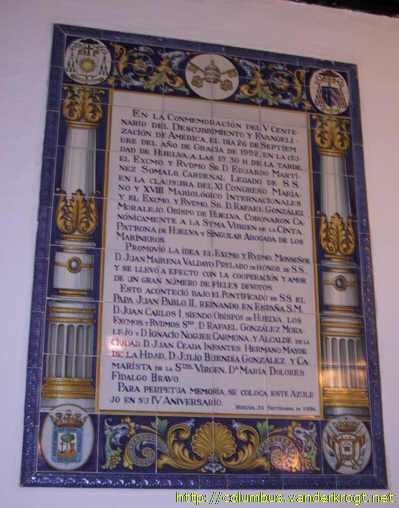 En la Conmemoración del V Cente-
nario del Descubrimiento y Evangeli-
zación de América, el día 26 de Septiem-
bre del año de Gracia de 1992, en la ciu-
dad de Huelva, a las 19,30 h de la tarde,
el Excmo y Rvdmo Sr. D Eduardo Martí-
nez Somalo, Cardenal Legado de S.S.
en la clausura del XI Congreso Maria-
no y XVIII Mariológico Internacionales
y el Excmo y Rvdmo Sr. D. Rafael González
Moralejo Obispo de Huelva, Coronaron Ca-
nónicamente a la Stma Virgen de la Cinta,
Patrona de Huelva y Singular Abogada de los
Marineros.
Promovió la idea el Excmo y Rvdmo. Monseñor
D. Juan Mairena Valdayo Prelado de Honor de S.S.,
y se llevó a efecto con la cooperación y amor
de un gran número de fieles devotos.
Esto aconteció bajo el Pontificado de S.S. el
Papa Juan Pablo II, reinando en España S.M.
D. Juan Carlos I, siendo Obispos de Huelva los
Excmos y Rvdmos Srs. D. Rafael González Mora-
lejo y D. Ignacio Noguer Carmona, y Alcalde de la
ciudad D. Juan Ceada Infantes, Hermano Mayor
de la Hdad. D. Julio Buendía González, y Ca-
marista de la Stma Virgen, Dª María Dolores
Fidalgo Bravo.
Para perpetua memoria, se coloca este Azule-
jo en su IV Aniversario.
Huelva, Septiembre de 1996.
http://columbus.vanderkrogt.net